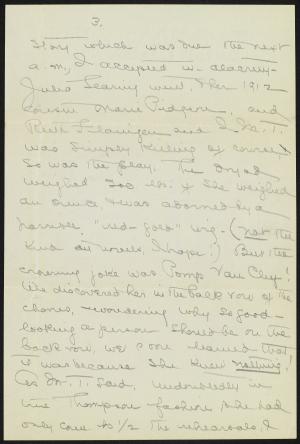 3.
story which was due the next
a.m, I accepted in alacrity-
Julia Leaning went, & her 1912
cousin Marie Pidgeon, and
Ruth Flanigen and I. M. T.
was simply killing of course,
So was the play. The
weighed 300 lbs. if she weighed
an ounce & was adorned by a
horrible "red-gold" wig - (not the
kind an novels, I hope!) But the
crowning joke was Pomp Van Cleef!
We discovered her in the back row of the
chorus, & wondering why so good-
looking a person should be on the
back row, we soon learned that
it was because she knew nothing!
As M. T. said, undoubtedly in
true Thompson fashion she had
only come to 1/2 the rehearsals, &